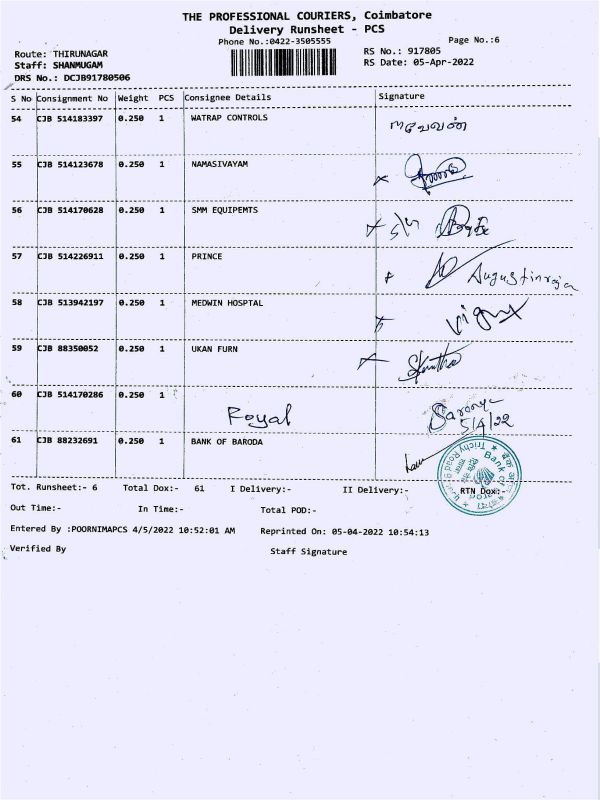 THE PROFESSIONAL COURIERS, Coimbatore
Delivery Runsheet - PCS
Phone No.:0422-3505555 Page No.:6
Route: THIRUNAGAR RS No.: 917805
Staff: SHANMUGAM RS Date: 05-Apr-2022
DRS No.: DCJB91780506
S No Consignment No Weight PCS Consignee Details Signature
54 CJB 514183397 0.250 1 WATRAP CONTROLS
55 CJB 514123678 0.250 1 NAMASIVAYAM
56 CJB 514170628 0.250 1 SMM EQUIPEMTS
57 CJB 514226911 0.250 1 PRINCE Augustinraja
58 CJB 513942197 0.250 1 MEDWIN HOSPTAL
59 CJB 88350052 0.250 1 UKAN FURN
60 CJB 514170286 0.250 1 Royal Saranya
5/4/22
61 CJB 88232691 0.250 1 BANK OF BARODA
Bank of
Trichy Road
Tot. Runsheet:- 6 Total Dox:- 61 I Delivery:- II Delivery:- RTN Dox:-
Out Time:- In Time:- Total POD:-
Entered By :POORNIMAPCS 4/5/2022 10:52:01 AM Reprinted On: 05-04-2022 10:54:13
Verified By Staff Signature